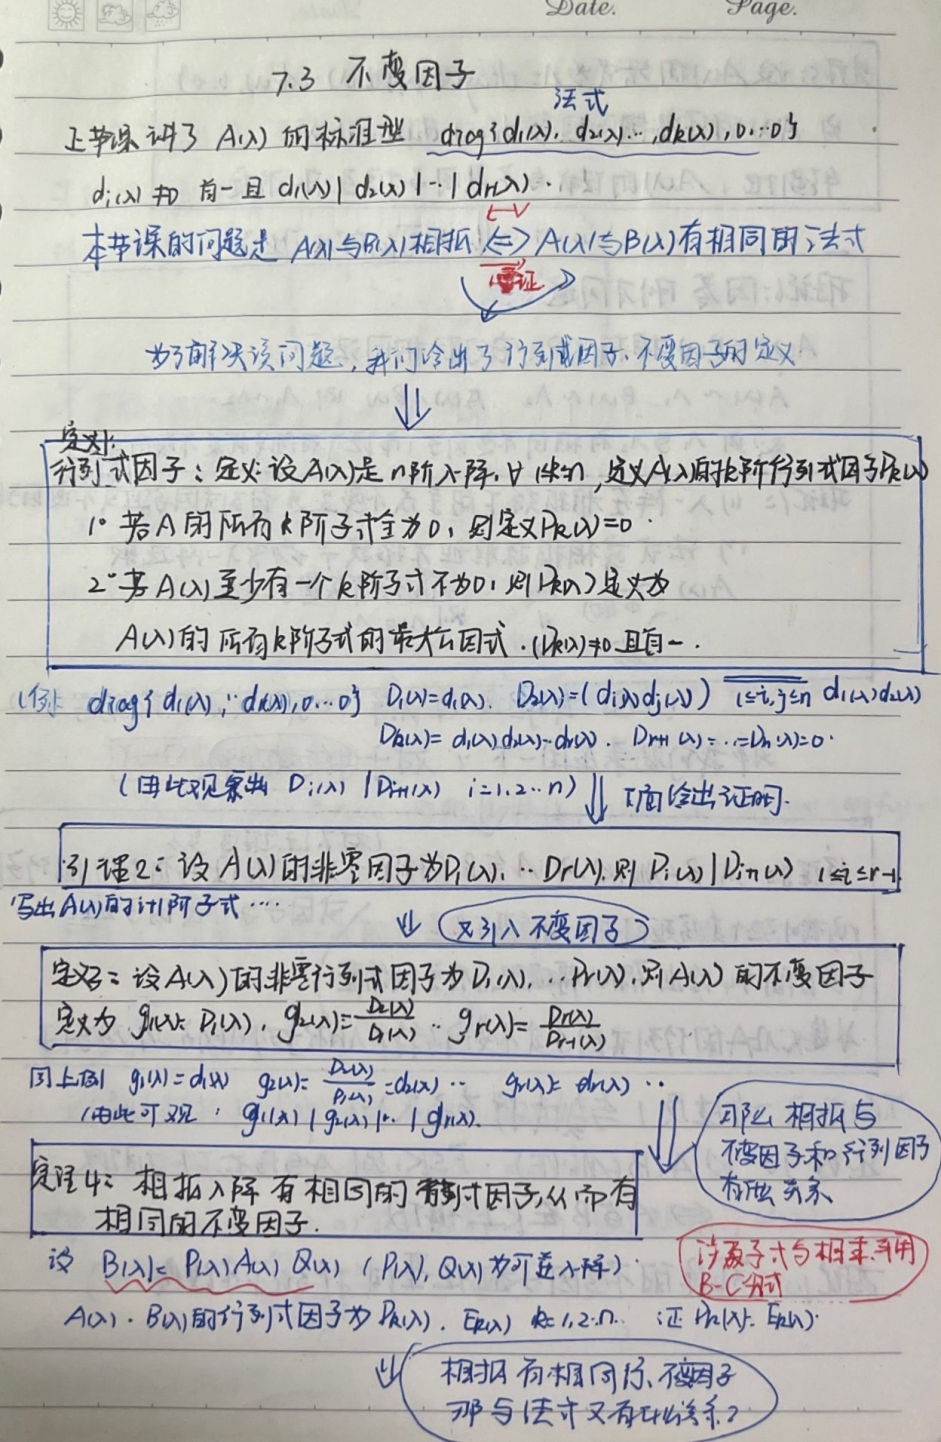 Date. Page.
7.3 不变因子
法式
上节课讲了 A(λ) 的标准型 diag{d₁(λ), d₂(λ)…, dr(λ), 0…0}
di(λ)≠0 首一且 d₁(λ)|d₂(λ)|…|dr(λ).
本节课的问题是 A(λ)与B(λ)相抵 <=> A(λ)与B(λ)有相同的法式
证
为了解决该问题, 我们给出了行列式因子、不变因子的定义.
定义1:
行列式因子: 定义: 设A(λ)是n阶λ-阵, ∀ 1≤k≤n, 定义A(λ)的k阶行列式因子Dk(λ)
1° 若A的所有k阶子式全为0, 则定义Dk(λ)=0.
2° 若A(λ)至少有一个k阶子式不为0, 则Dk(λ)定义为
A(λ)的所有k阶子式的最大公因式. (Dk(λ)≠0且首一.
(例: diag{d₁(λ),…dr(λ),0…0} D₁(λ)=d₁(λ). D₂(λ)=(di(λ)dj(λ)) 1≤i,j≤n d₁(λ)d₂(λ)
Dr(λ)=d₁(λ)d₂(λ)…dr(λ). Dr+1(λ)=…=Dn(λ)=0.
(由此观察出 Di(λ)|Di+1(λ) i=1,2…n) ⇓ 下面给出证明.
引理2: 设A(λ)的非零因子为D₁(λ),…Dr(λ),则 Di(λ)|Di+1(λ) 1≤i≤r-1
写出A(λ)的i+1阶子式….
⇓ 又引入不变因子
定义3: 设A(λ)的非零行列式因子为D₁(λ),…Dr(λ),则A(λ)的不变因子
定义为 g₁(λ)=D₁(λ), g₂(λ)=D₂(λ)/D₁(λ) … gr(λ)=Dr(λ)/Dr-1(λ)
同上例 g₁(λ)=d₁(λ) g₂(λ)=D₂(λ)/D₁(λ)=d₂(λ) … gr(λ)=dr(λ) …
(由此可观: g₁(λ)|g₂(λ)|…|gr(λ).
那么相抵与
不变因子和行列因子
有什么关系
定理4: 相抵λ阵有相同的行列式因子,从而有
相同的不变因子.
设 B(λ)=P(λ)A(λ)Q(λ) (P(λ),Q(λ)为可逆λ阵)
涉及子式与相乘,采用
B-C公式
A(λ)、B(λ)的行列式因子为Dk(λ), Ek(λ) k=1,2…n. 证Dk(λ)=Ek(λ).
⇓ 相抵有相同行、不变因子
那与法式又有什么关系?